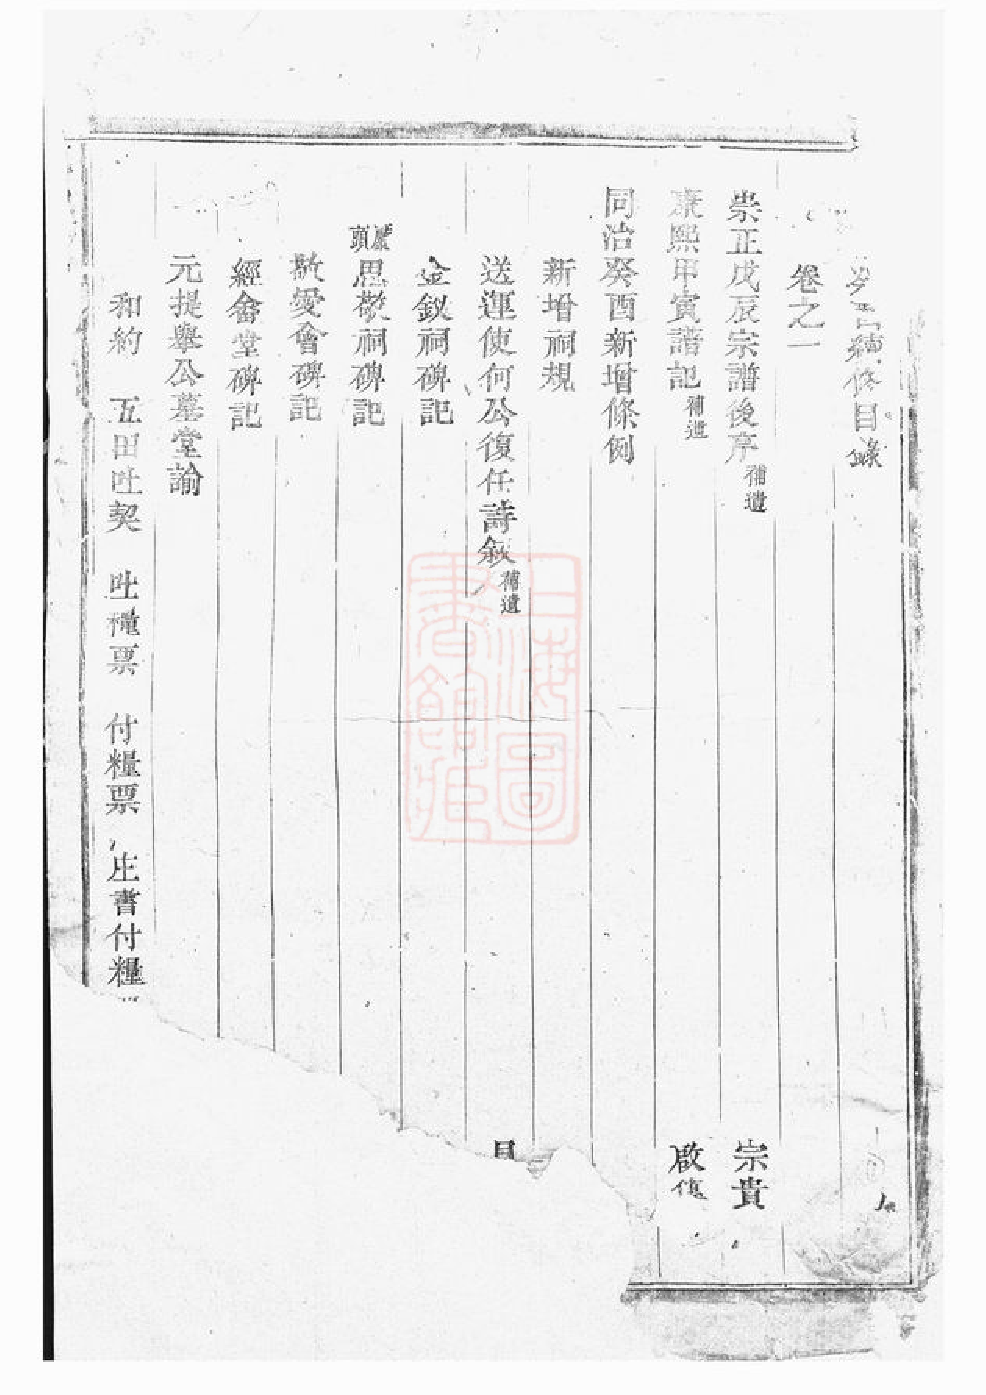 續修目錄
卷之一
崇正戊辰宗譜後序 補遺 宗貴
康熙甲寅譜記 補遺 啟
同治癸酉新增條例
新增祠規
送運使何公復任詩敘 補遺
金釵祠碑記
思敬祠碑記
敬愛會碑記
經畬堂碑記
元提舉公墓堂諭
和約 五田吐契 吐穐票 付糧票 庄書付糧
上海圖書館藏